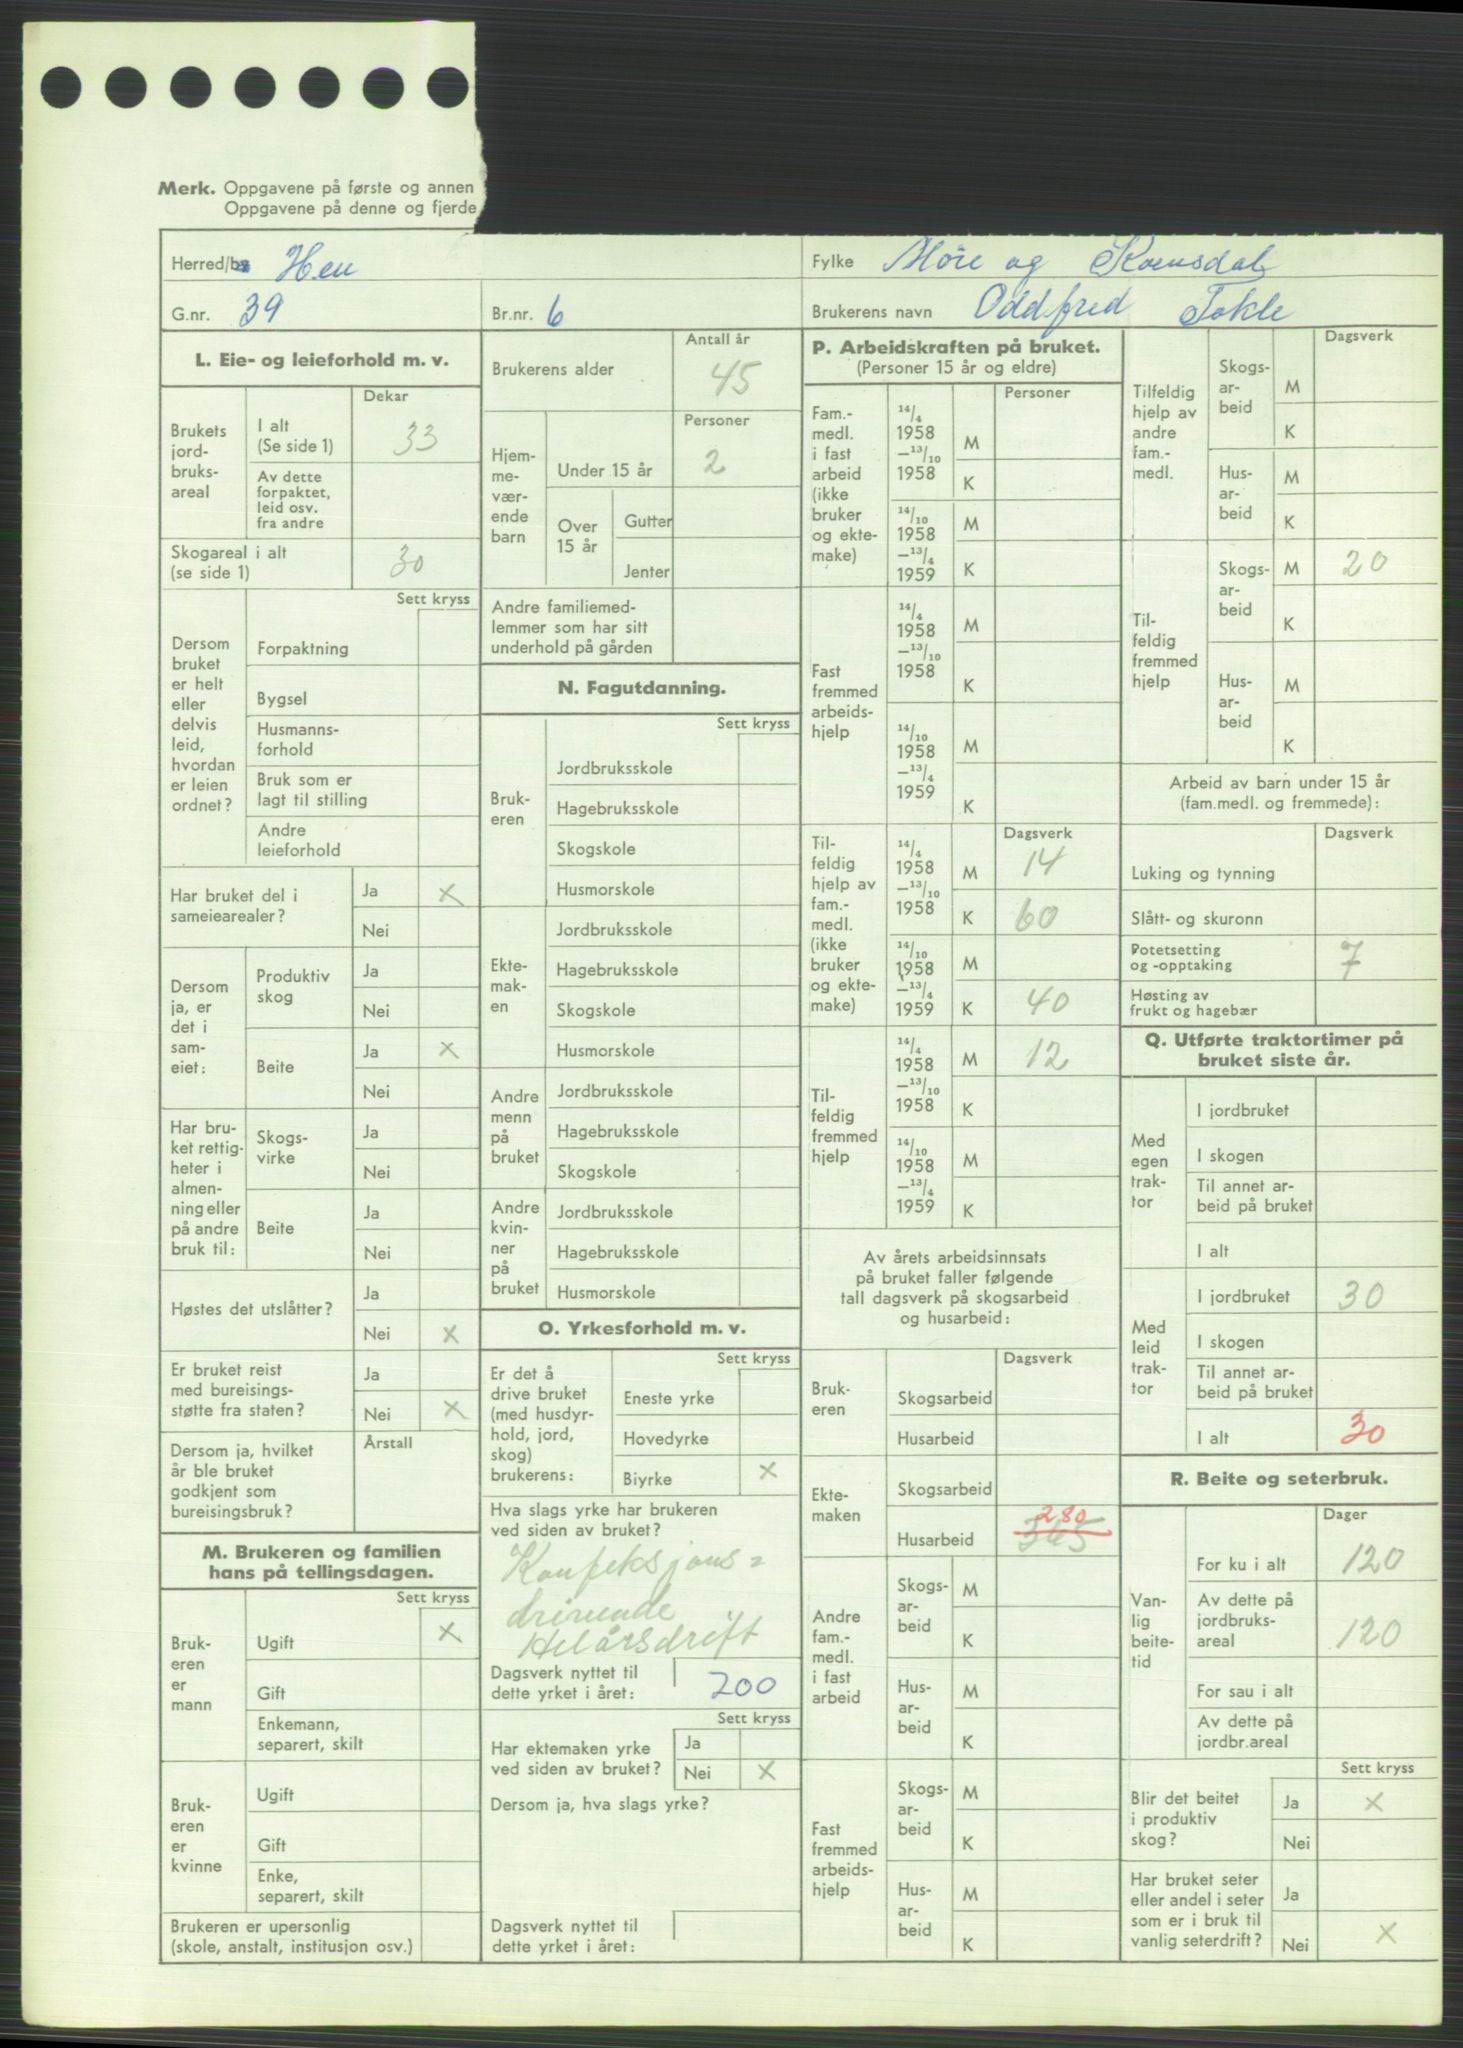 Merk. Oppgavene på første og annen
Oppgavene på denne og fjerde
Herred/by Hen
Fylke Møre og Romsdal
G.nr. 39
Br.nr. 6
Brukerens navn Oddfred Tokle
L. Eie- og leieforhold m. v.
Dekar
Brukets jord-bruks-areal
I alt (Se side 1) 33
Av dette forpaktet, leid osv. fra andre
Skogareal i alt (se side 1) 30
Sett kryss
Dersom bruket er helt eller delvis leid, hvordan er leien ordnet?
Forpaktning
Bygsel
Husmanns-forhold
Bruk som er lagt til stilling
Andre leieforhold
Har bruket del i sameiearealer?
Ja x
Nei
Dersom ja, er det i sam-eiet:
Produktiv skog
Ja
Nei
Beite
Ja x
Nei
Har bru-ket rettig-heter i almen-ning eller på andre bruk til:
Skogs-virke
Ja
Nei
Beite
Ja
Nei
Høstes det utslåtter?
Ja
Nei x
Er bruket reist med bureisings-støtte fra staten?
Ja
Nei x
Dersom ja, hvilket år ble bruket godkjent som bureisingsbruk?
Årstall
M. Brukeren og familien hans på tellingsdagen.
Sett kryss
Bruk-eren er mann
Ugift x
Gift
Enkemann, separert, skilt
Bruk-eren er kvinne
Ugift
Gift
Enke, separert, skilt
Brukeren er upersonlig (skole, anstalt, institusjon osv.)
Antall år
Brukerens alder 45
Personer
Hjem-me-vær-ende barn
Under 15 år 2
Over 15 år
Gutter
Jenter
Andre familiemed-lemmer som har sitt underhold på gården
N. Fagutdanning.
Sett kryss
Bruk-eren
Jordbruksskole
Hagebruksskole
Skogskole
Husmorskole
Ekte-mak-en
Jordbruksskole
Hagebruksskole
Skogskole
Husmorskole
Andre menn på bruket
Jordbruksskole
Hagebruksskole
Skogskole
Andre kvin-ner på bruket
Jordbruksskole
Hagebruksskole
Husmorskole
O. Yrkesforhold m. v.
Sett kryss
Er det å drive bruket (med husdyr-hold, jord, skog) brukerens:
Eneste yrke
Hovedyrke
Biyrke x
Hva slags yrke har brukeren ved siden av bruket?
Konfeksjons=
drivende
Helårsdrift
Dagsverk nyttet til dette yrket i året: 200
Sett kryss
Har ektemaken yrke ved siden av bruket?
Ja
Nei x
Dersom ja, hva slags yrke?
Dagsverk nyttet til dette yrket i året:
P. Arbeidskraften på bruket.
(Personer 15 år og eldre)
Personer
Fam.-medl. i fast arbeid (ikke bruker og ekte-make)
14/4 1958 –13/10 1958
M
K
14/10 1958 –13/4 1959
M
K
Fast fremmed arbeids-hjelp
14/4 1958 –13/10 1958
M
K
14/10 1958 –13/4 1959
M
K
Dagsverk
Til-feldig hjelp av fam.-medl. (ikke bruker og ekte-make)
14/4 1958 –13/10 1958
M 14
K 60
14/10 1958 –13/4 1959
M
K 40
Til-feldig fremmed hjelp
14/4 1958 –13/10 1958
M 12
K
14/10 1958 –13/4 1959
M
K
Av årets arbeidsinnsats på bruket faller følgende tall dagsverk på skogsarbeid og husarbeid:
Dagsverk
Bruk-eren
Skogsarbeid
Husarbeid
Ekte-maken
Skogsarbeid
280
Husarbeid 365
Andre fam.-medl. i fast arbeid
Skogs-ar-beid
M
K
Hus-ar-beid
M
K
Fast fremmed arbeids-hjelp
Skogs-ar-beid
M
K
Hus-ar-beid
M
K
Dagsverk
Tilfeldig hjelp av andre fam.-medl.
Skogs-ar-beid
M
K
Hus-ar-beid
M
K
Til-feldig fremmed hjelp
Skogs-ar-beid
M 20
K
Hus-ar-beid
M
K
Arbeid av barn under 15 år (fam.medl. og fremmede):
Dagsverk
Luking og tynning
Slått- og skuronn
Potetsetting og -opptaking 7
Høsting av frukt og hagebær
Q. Utførte traktortimer på bruket siste år.
Med egen trak-tor
I jordbruket
I skogen
Til annet ar-beid på bruket
I alt
Med leid trak-tor
I jordbruket 30
I skogen
Til annet ar-beid på bruket
I alt 30
R. Beite og seterbruk.
Dager
Van-lig beite-tid
For ku i alt 120
Av dette på jordbruks-areal 120
For sau i alt
Av dette på jordbr.areal
Sett kryss
Blir det beitet i produktiv skog?
Ja x
Nei
Har bruket seter eller andel i seter som er i bruk til vanlig seterdrift?
Ja
Nei x